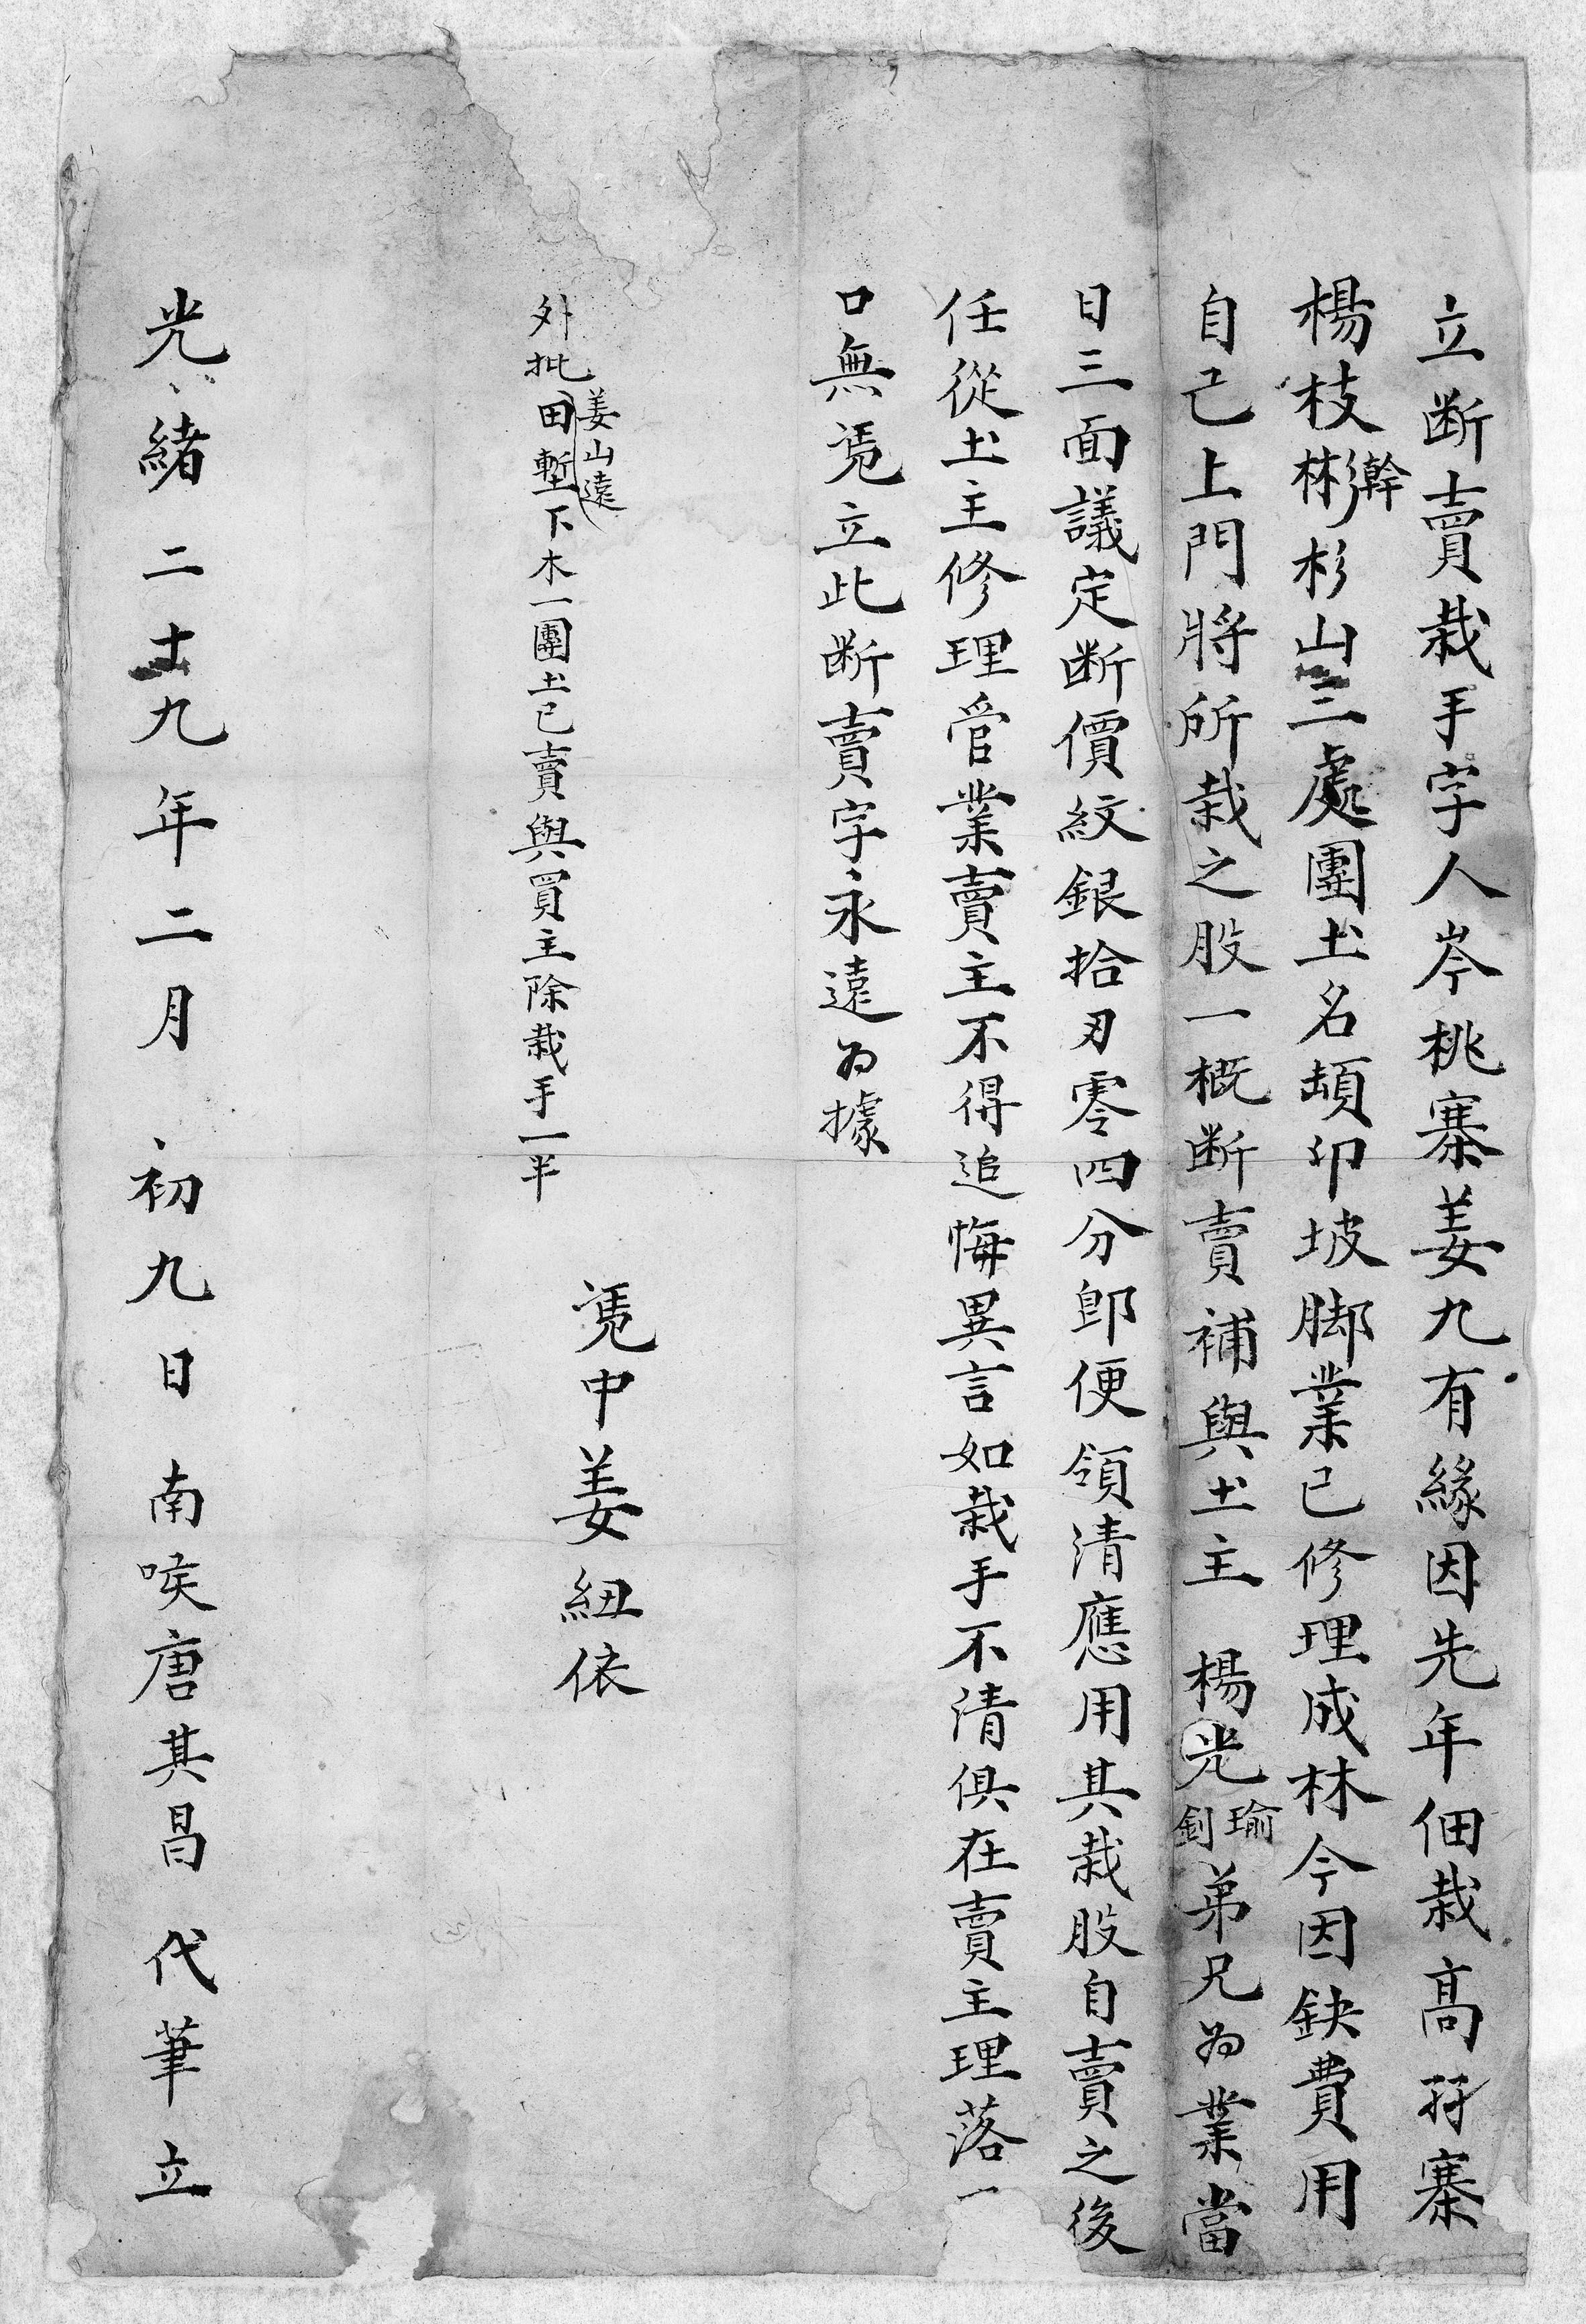 立断賣栽手字人岑桃寨姜九有緣因先年佃栽高孖寨
楊枝林瀚彬杉山三處團土名頡卬坡脚業已修理成林今因缺費用
自己上門將所栽之股一概断賣補與土主 楊光瑜釗弟兄為業當
日三面議定断價紋銀拾刃零四分卽便領清應用其栽股自賣之後
任從土主修理管業賣主不得追悔異言如栽手不清俱在賣主理落一
口無凴立此断賣字永遠為據
外批姜山遠田塹下木一團土已賣與買主除栽手一半
凴中姜紐依
光緒二十九年二月 初九日南唉唐其昌 代筆立